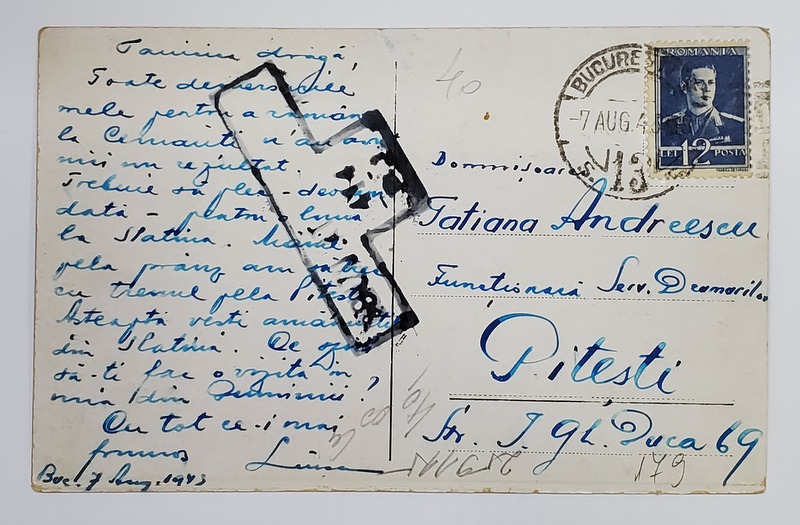 Tanica dragă,
Toate demersurile
mele pentru a rămân
la Cernăuți n'au avut
nici un rezultat.
Trebuie să plec - deocam
dată - pentru o lună
la Slatina.
pela prânz am
cu trenul pela Pitești
Așteaptă vești amănunțite
din Slatina. Ce
să-ți fac o vizită în
una din Duminici?
Cu tot ce-i mai
frumos
Buc. 7 Aug. 1943
40
BUCUREȘ
-7 AUG. 4
13
ROMANIA
LEI 12 POSTA
Domnișoarei
Tatiana Andreescu
Funcționară Serv. Drumurilor
Pitești
Str. I. Gh. Duca 69
179